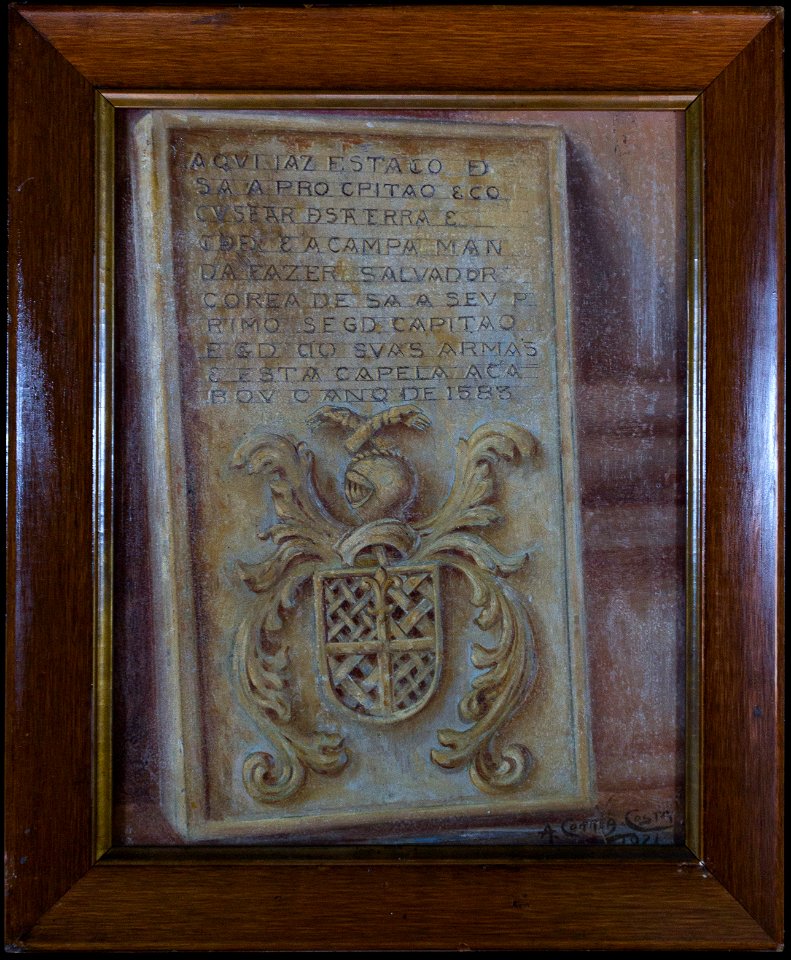 AQVI IAZ ESTACO D
SA A PRO CPITAO & CO
CVSTAR DSTA ERRA &
CDE & A CAMPA MAN
DA FAZER SALVADOR
COREA DE SA A SEV P
RIMO SEGD CAPITAO
E GD DO SVAS ARMAS
& ESTA CAPELA ACA
BOV O ANO DE 1583
A Corrêa Costa